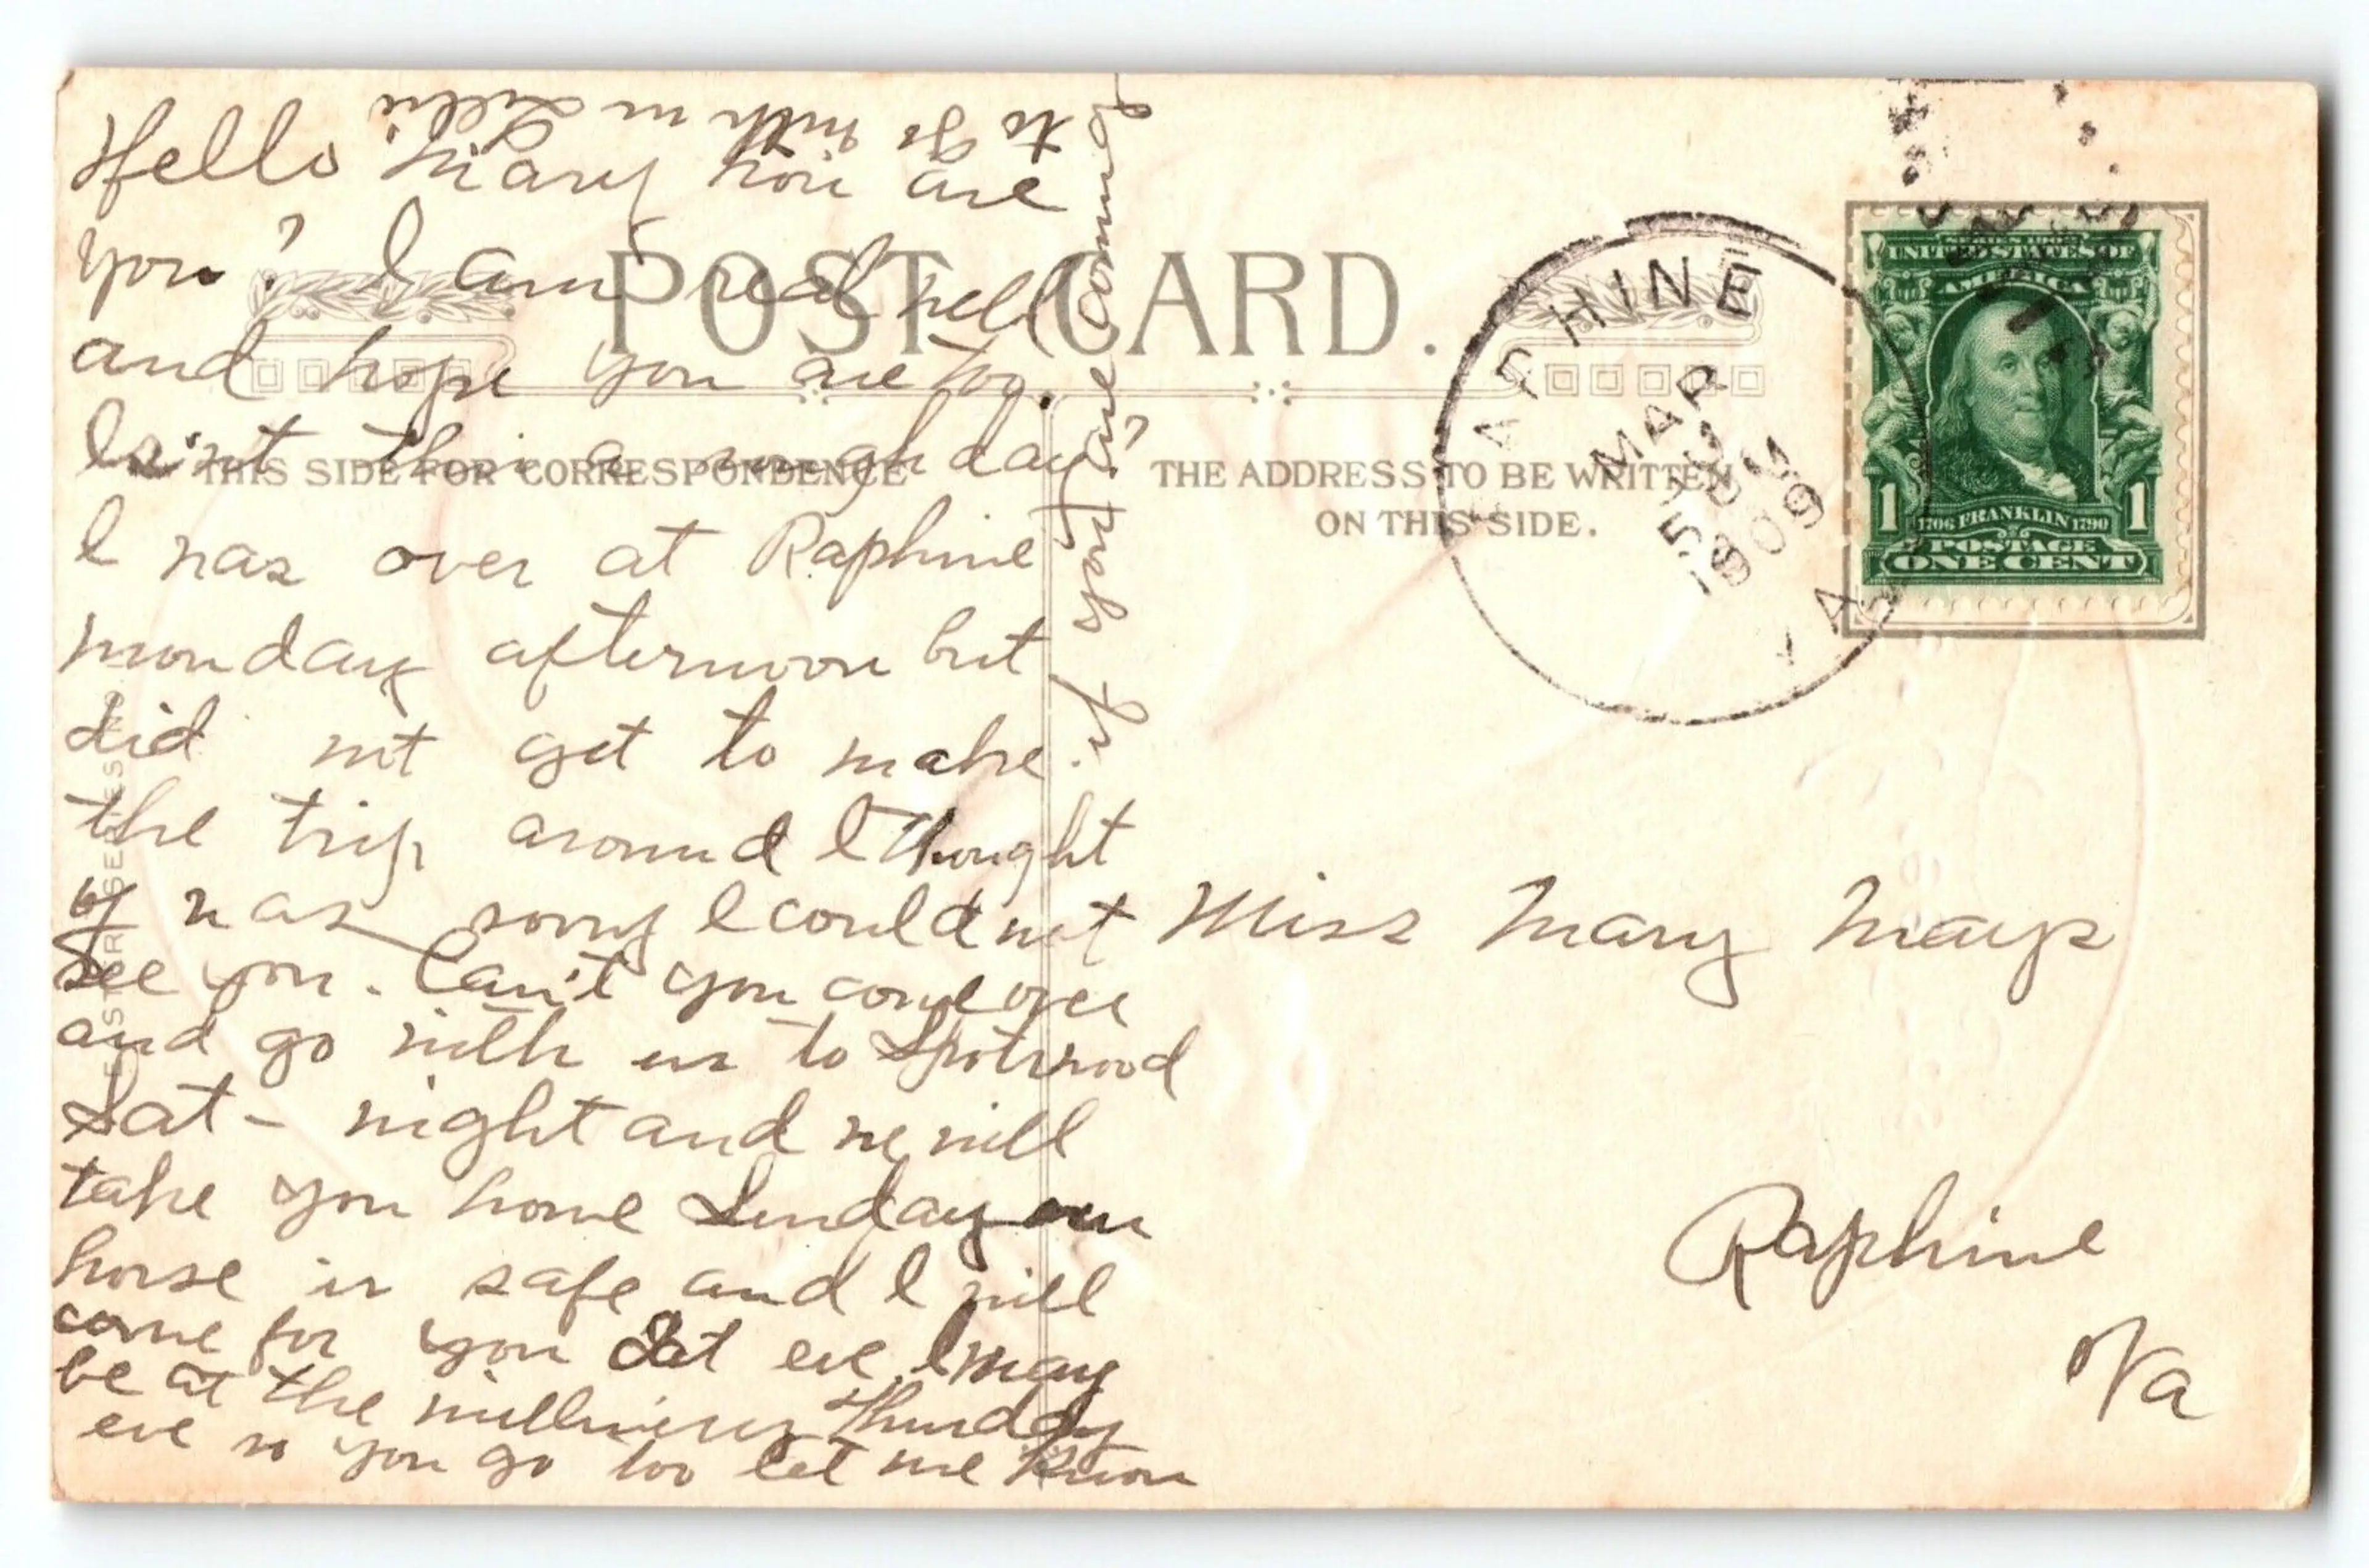 Hello Mary how are
you? I am real well
and hope you are too.
Isn't this a rough day?
I was over at Raphine
monday afternoon but
did not get to make
the trip around I thought
of was sorry I could not
see you. Can't you come over
and go with us to Spotswood
Sat - night and we will
take you home Sunday our
horse is safe and I will
come for you Sat eve. I may
be at the milliners Thursday
eve so you go too let me know
if you are coming
to go with us Lillie
POST CARD.
THIS SIDE FOR CORRESPONDENCE
THE ADDRESS TO BE WRITTEN
ON THIS SIDE.
RAPHINE
MAR
3
5 PM
1909
VA.
UNITED STATES OF
AMERICA
1706 FRANKLIN 1790
1 1
POSTAGE
ONE CENT
Miss Mary Mays
Raphine
Va